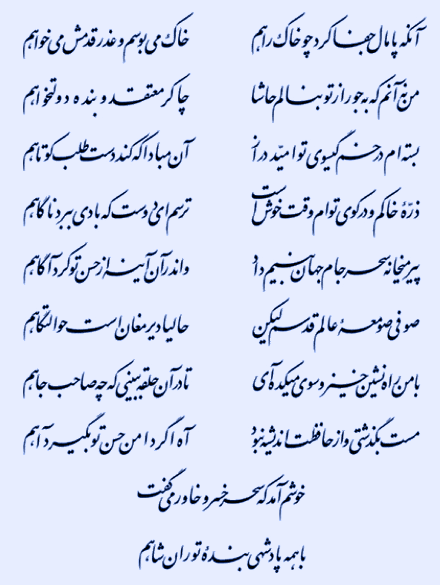 آنکه پامال جفا کرد چو خاک راهم خاک می‌بوسم و عذر قدمش می‌خواهم
من نه آنم که به جور از تو بنالم حاشا چاکر معتقد و بنده دولتخواهم
بسته‌ام در خم گیسوی تو امید دراز آن مبادا که کند دست طلب کوتاهم
ذره خاکم و در کوی توام وقت خوش است ترسم ای دوست که بادی ببرد ناگاهم
پیر میخانه سحر جام جهان‌بینم داد واندر آن آینه از حسن تو کرد آگاهم
صوفی صومعه عالم قدسم لیکن حالیا دیر مغان است حوالتگاهم
با من راه‌نشین خیز و سوی میکده آی تا در آن حلقه ببینی که چه صاحب جاهم
مست بگذشتی و از حافظت اندیشه نبود آه اگر دامن حسن تو بگیرد آهم
خوشم آمد که سحر خسرو خاور می‌گفت
با همه پادشهی بنده توران‌شاهم